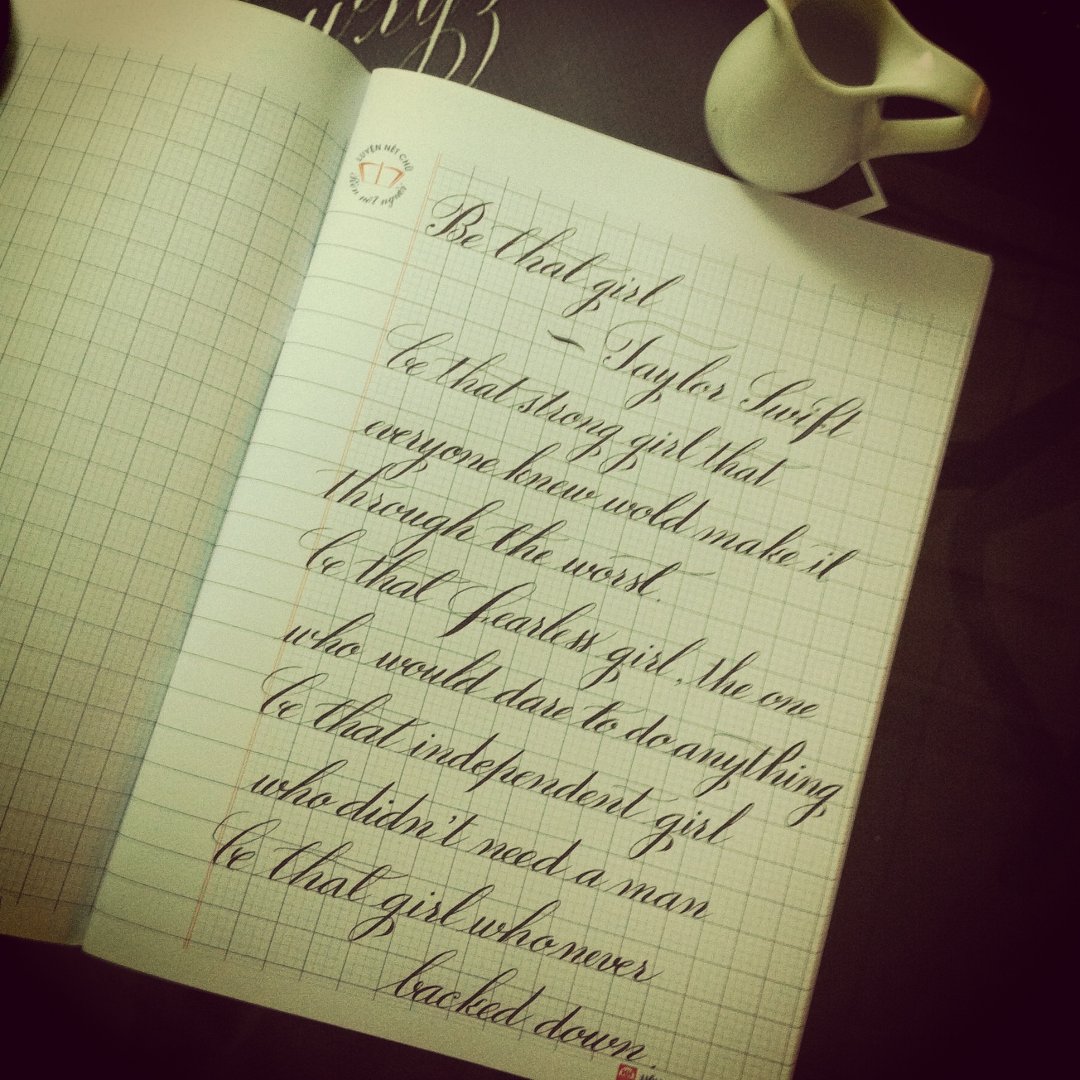 LUYỆN NÉT CHỮ
Rèn nết người
Be that girl
– Taylor Swift
be that strong girl that
everyone knew wold make it
through the worst.
be that fearless girl, the one
who would dare to do anything
be that independent girl
who didn't need a man
be that girl who never
backed down.